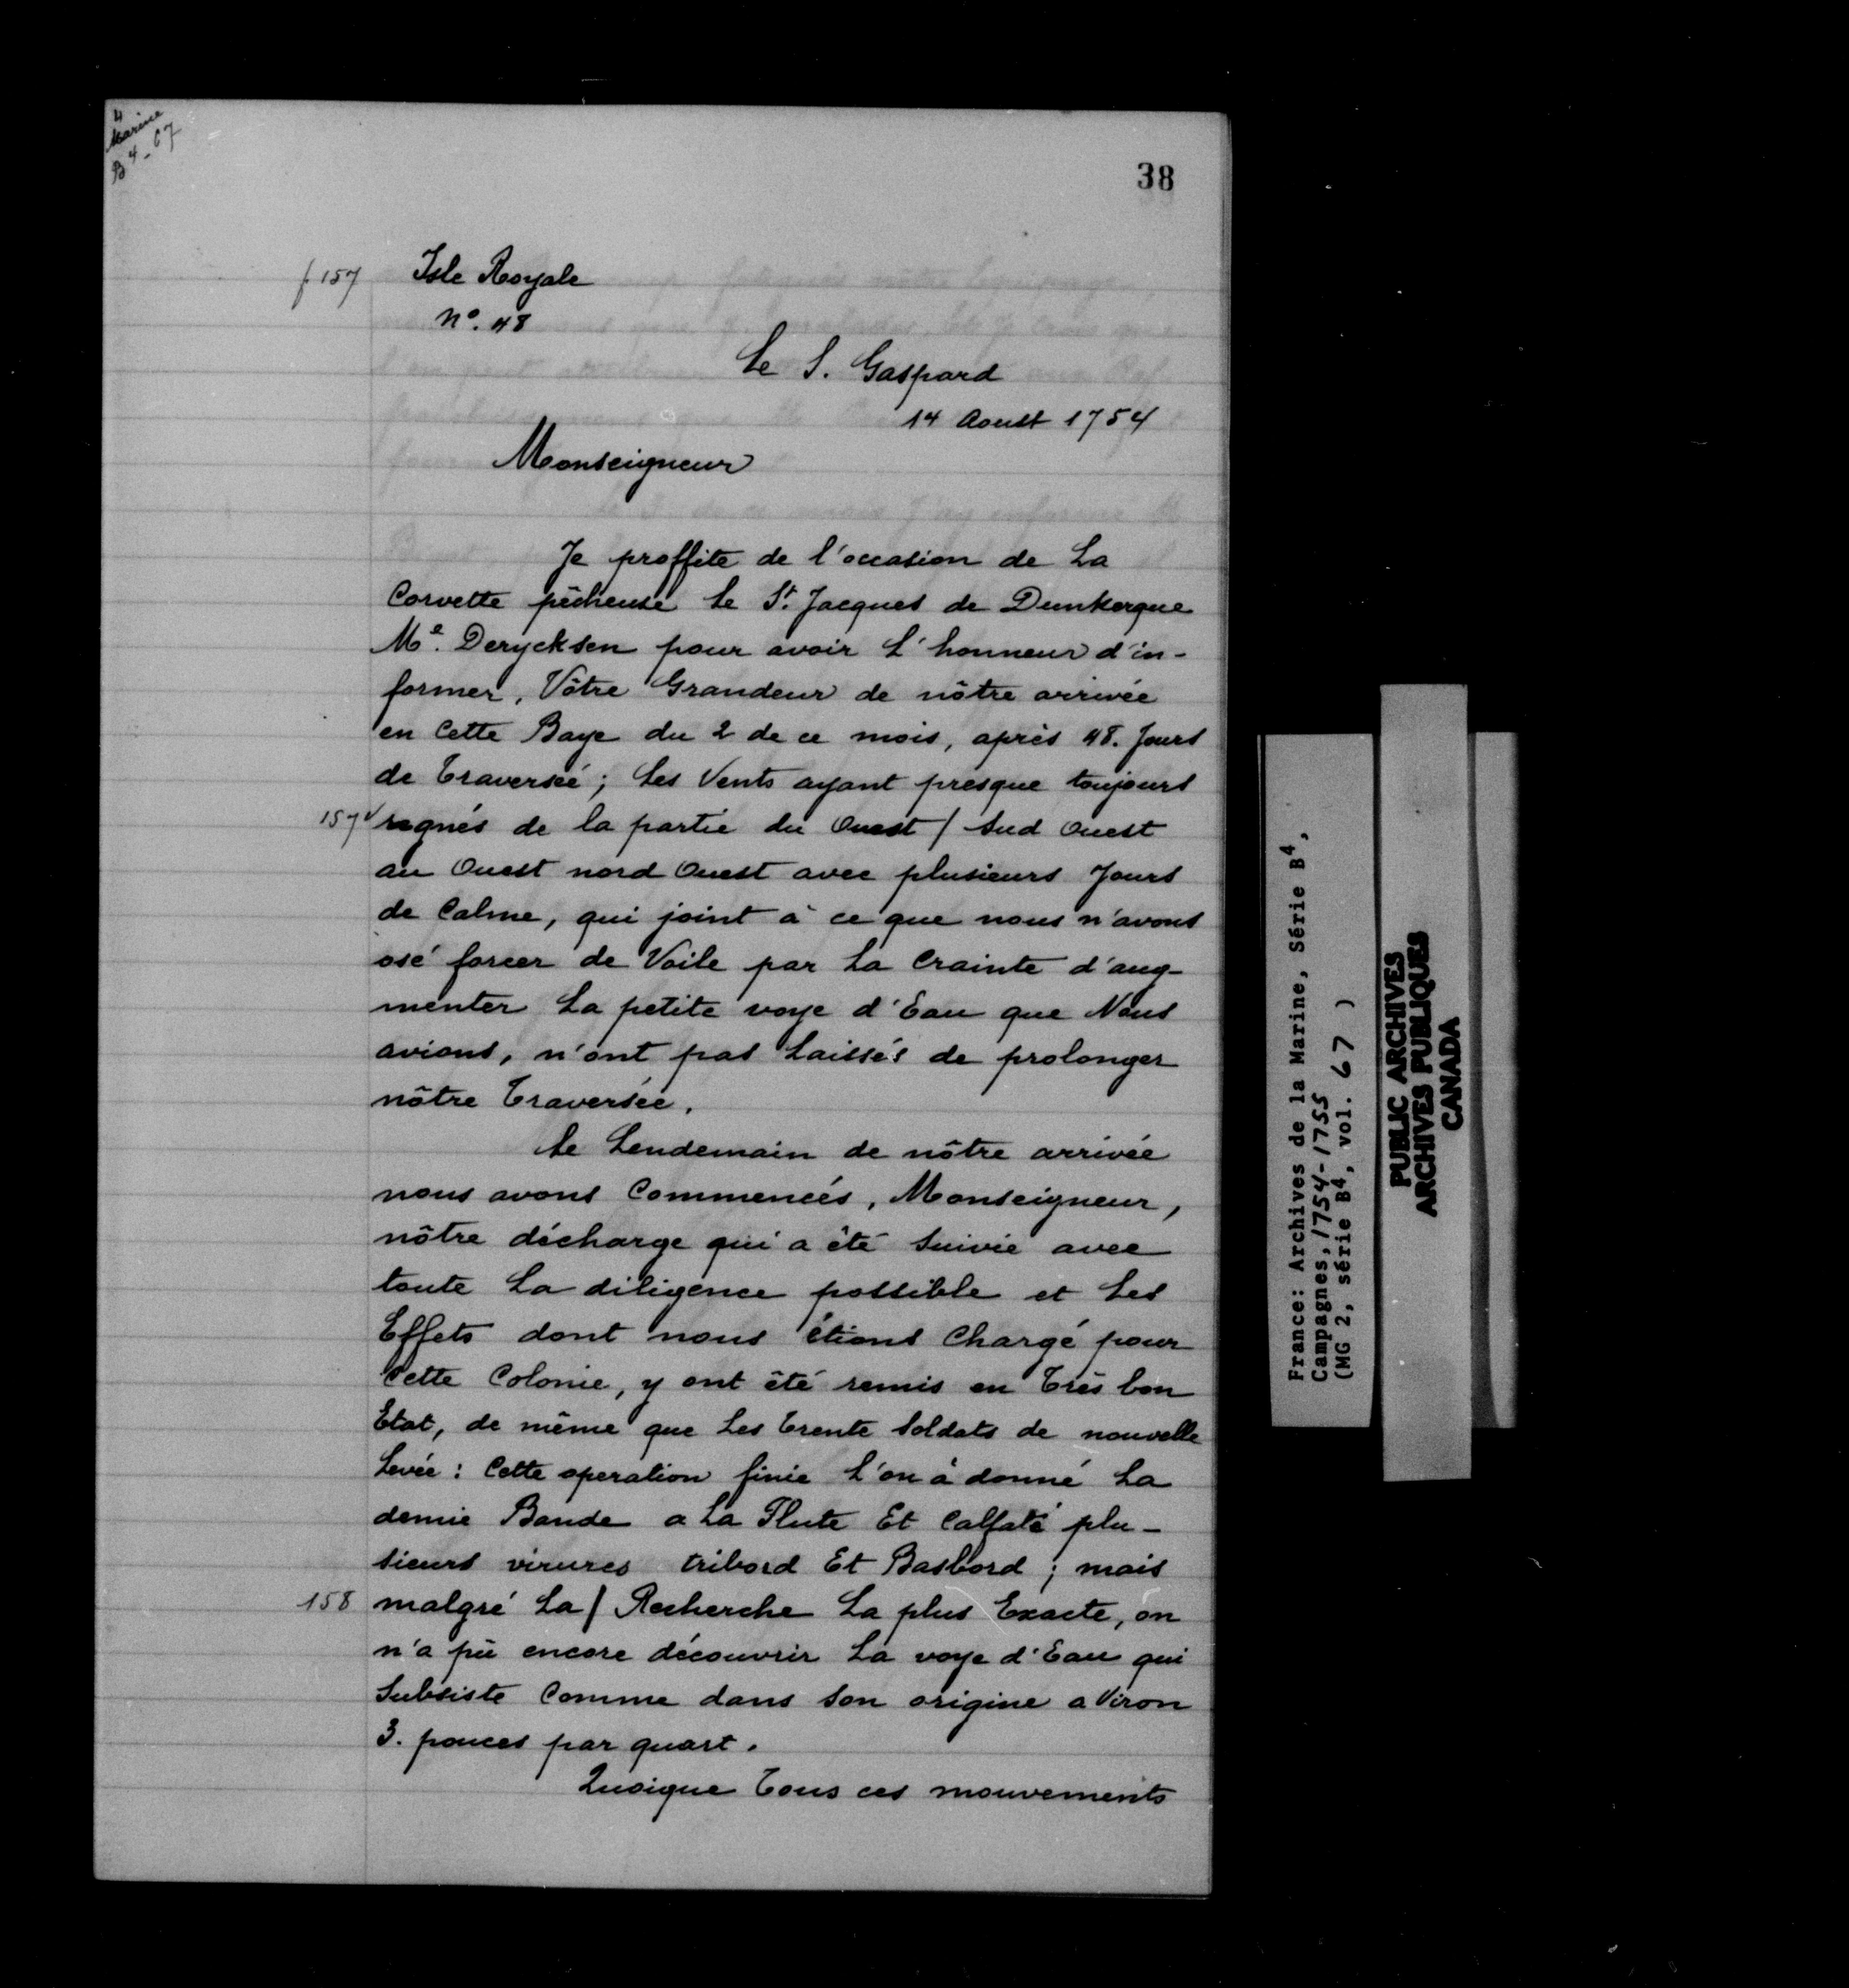 4
Marine
B4-67
38
f 157
Isle Royale
No. 48
Le S. Gaspard
14 Aoust 1754
Monseigneur
Je proffite de l'occasion de La
Corvette pêcheuse Le St. Jacques de Dunkerque
Me. Derycksen pour avoir L'honneur d'in-
former, Vôtre Grandeur de nôtre arrivée
en Cette Baye du 2 de ce mois, après 48. Jours
de Traversée; Les Vents ayant presque toujours
157v regnés de la partie du Ouest / Sud Ouest
au Ouest nord Ouest avec plusieurs Jours
de Calme, qui joint à ce que nous n'avons
osé forcer de Voile par La Crainte d'aug-
menter La petite voye d'Eau que Nous
avions, n'ont pas Laissés de prolonger
nôtre Traversée.
Le Lendemain de nôtre arrivée
nous avons Commencés, Monseigneur,
nôtre décharge qui a été Suivie avec
toute La diligence possible et Les
Effets dont nous étions Chargé pour
Cette Colonie, y ont été remis en Très bon
Etat, de même que Les Trente Soldats de nouvelle
Levée: Cette operation finie L'on à donné La
demie Bande a La Flute Et Calfaté plu-
sieurs virures tribord Et Basbord; mais
158 malgré La / Recherche La plus Exacte, on
n'a pû encore découvrir La voye d'Eau qui
Subsiste Comme dans Son origine a Viron
3. pouces par quart.
Quoique Tous ces mouvements
France: Archives de la Marine, Série B4,
Campagnes, 1754-1755
(MG 2, série B4, vol. 67 )
PUBLIC ARCHIVES
ARCHIVES PUBLIQUES
CANADA